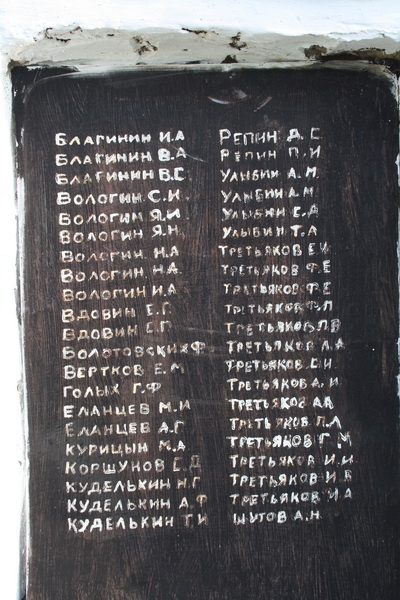 БЛАГИНИН И.А
БЛАГИНИН В.А
БЛАГИНИН В.С
ВОЛОГИН С.И.
ВОЛОГИН Я.И
ВОЛОГИН Я.Н.
ВОЛОГИН Н.А
ВОЛОГИН Н.А.
ВОЛОГИН И.А.
ВДОВИН Е.Г.
ВДОВИН
БОЛОТОВСКИХ Ф.
ВЕРТКОВ Е.М
ГОЛЫХ Г.Ф
ЕЛАНЦЕВ М.И
ЕЛАНЦЕВ А.Г
КУРИЦЫН М.А
КОРШУНОВ Г.Д
КУДЕЛЬКИН Н.Г
КУДЕЛЬКИН А.Ф
КУДЕЛЬКИН Т.И
РЕПИН Д.С
РЕПИН П.И
УЛЫБИН А.М.
УЛЫБИН А.М.
УЛЫБИН С.Д
УЛЫБИН Т.А
ТРЕТЬЯКОВ Е.И
ТРЕТЬЯКОВ Ф.Е
ТРЕТЬЯКОВ Ф.Е
ТРЕТЬЯКОВ Ф.П
ТРЕТЬЯКОВ П.В
ТРЕТЬЯКОВ А.А
ТРЕТЬЯКОВ С.И.
ТРЕТЬЯКОВ А.И
ТРЕТЬЯКОВ А.А.
ТРЕТЬЯКОВ Л.Л
ТРЕТЬЯКОВ Г.М
ТРЕТЬЯКОВ И.И
ТРЕТЬЯКОВ И.В
ТРЕТЬЯКОВ И А
ШУТОВ А.Н.